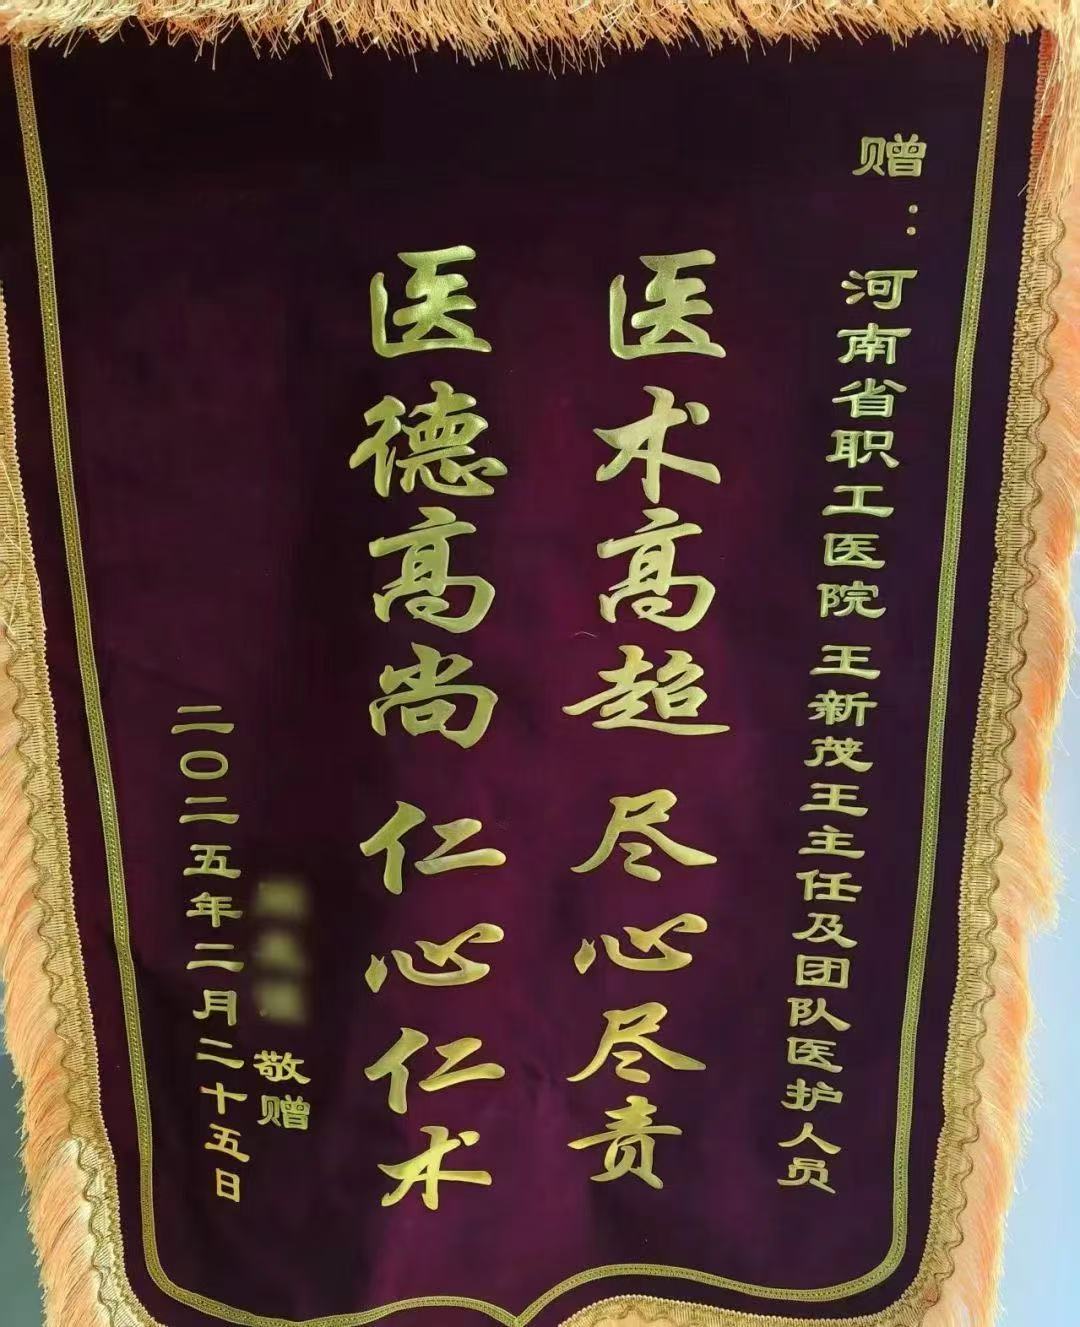 赠：河南省职工医院 王新茂王主任及团队医护人员
医术高超 尽心尽责
医德高尚 仁心仁术
敬赠
二〇二五年二月二十五日